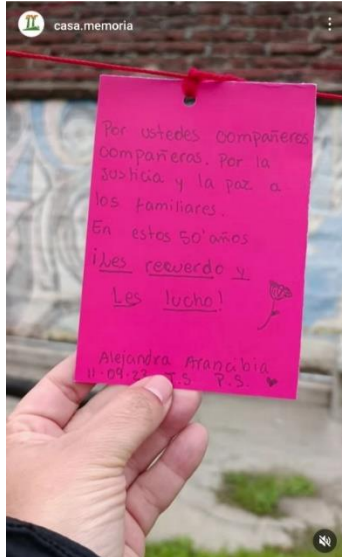 casa.memoria
Por ustedes compañeros
compañeras. Por la
Justicia y la paz a
los familiares.
En estos 50 años
¡Les recuerdo y
Les lucho!
Alejandra Arancibia
11-09-23 J.S P.S.